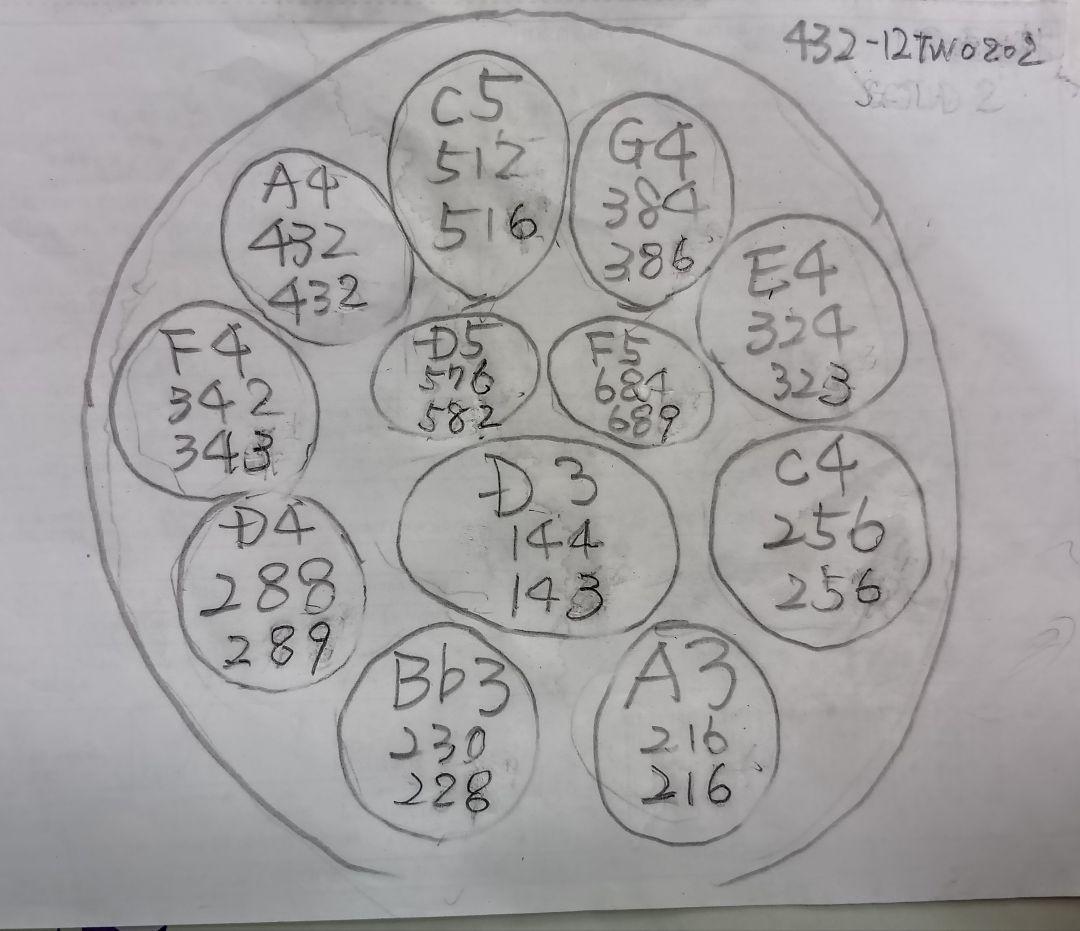 432-12TWO202
C5
512
516
G4
384
386
A4
432
432
E4
324
323
F4
342
343
D5
576
582
F5
684
689
C4
256
256
D3
144
143
D4
288
289
Bb3
230
228
A3
216
216